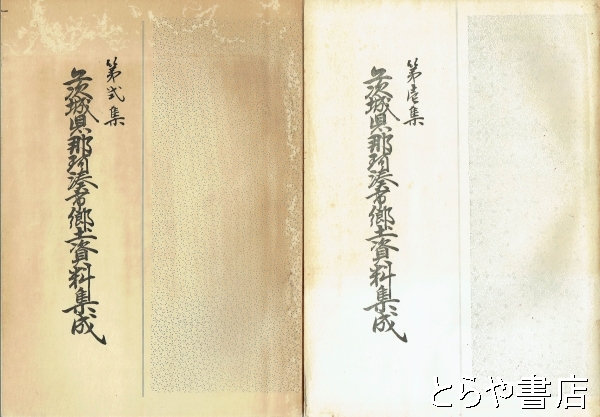 第弐集
茨城県那珂湊市郷土資料集成
第壱集
茨城県那珂湊市郷土資料集成
とらや書店